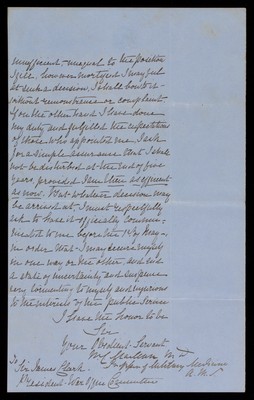 inefficient – unequal to the position
I fill. however mortified I may feel
at such a decision, I shall bow to it
without remonstrance or complaint.
If on the other hand I have done
my duty and fulfilled the expectations
of those who appointed me I ask
for a simple assurance that I shall
not be disturbed at the end of five
years provided I am then as efficient
as now. Whatsoever decision may
be arrived at I must respectfully
ask to have it officially commu-
nicated to me before the 1st May –
in order that I may secure myself
in one way or the other, and end
a state of uncertainty and suspense
very tormenting to myself and injurious
to the interests of the public Service
I have the honor to be
Sir
Your Obedient Servant
M.D.
Professor of Military Medicine
A. M. S
To
Sir James Clark
President War Office Committee